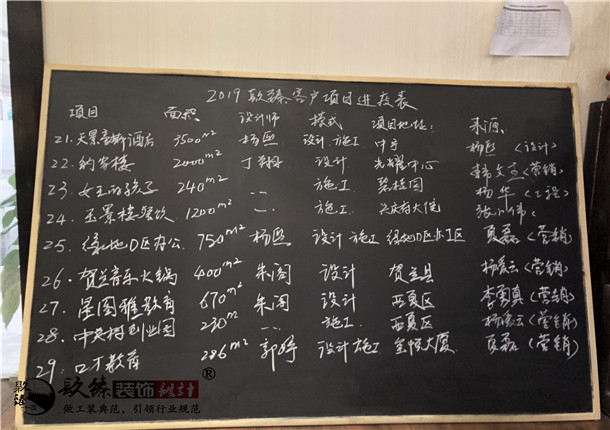 2019 歆臻客户项目进度表
项目 面积 设计师 模式 项目地址: 来源
21. 天景豪斯酒店 3500m² 杨熙 设计.施工 中宁 杨熙 (设计)
22. 纳家楼 2000m² 丁 设计 光耀中心 韩文 (营销)
23. 女王的孩子 240m² 一一 施工 碧桂园 杨华 (工程)
24. 玉景楼餐饮 1200m² 一. 施工. 兴庆府大院 张小伟
25. 绿地D区办公. 750m² 杨熙 设计 施工 绿地D区办工区 夏磊 (营销)
26. 贺兰音乐火锅 400m² 朱阁 设计 贺兰县 杨发云 (营销)
27. 墨图雅教育 670m² 朱阁 设计 西夏区 李勇真 (营销)
28. 中关村创业园 230m² 一.. 施工. 西夏区 杨发云 (营销)
29. 口才教育 286m² 郭婷 设计施工 金恒大厦. 夏磊 (营销)
歆臻装饰设计®
做工装典范，引领行业规范